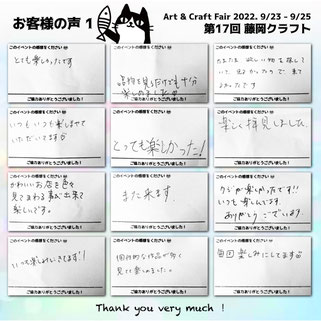 お客様の声 1
Art & Craft Fair 2022. 9/23 - 9/25
第17回 藤岡クラフト
このイベントの感想をください
とても楽しかったです
ご協力ありがとうございました!
このイベントの感想をください
品物を見るだけでも十分
楽しめました
ご協力ありがとうございました!
このイベントの感想をください
ご協力ありがとうございました!
このイベントの感想をください
いつもいつも楽しませて
いただいてます
ご協力ありがとうございました!
このイベントの感想をください
とっても楽しかった!
ご協力ありがとうございました!
このイベントの感想をください
楽しく拝見しました
ご協力ありがとうございました!
このイベントの感想をください
かわいいお店を色々
見てまわる事が出来て
楽しいです。
ご協力ありがとうございました!
このイベントの感想をください
また来ます
ご協力ありがとうございました!
このイベントの感想をください
楽しかったです!!
いつも楽しんでます
ありがとうございます
ご協力ありがとうございました!
このイベントの感想をください
いつも楽しみにしてます!!
ご協力ありがとうございました!
このイベントの感想をください
個性的な作品が多く
見てて楽しめました。
ご協力ありがとうございました!
このイベントの感想をください
毎回楽しみにしてます
ご協力ありがとうございました!
Thank you very much !